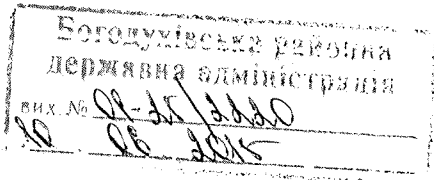 Богодухівська районна
державна адміністрація
вих. № 01-25/2220
10 06 2015